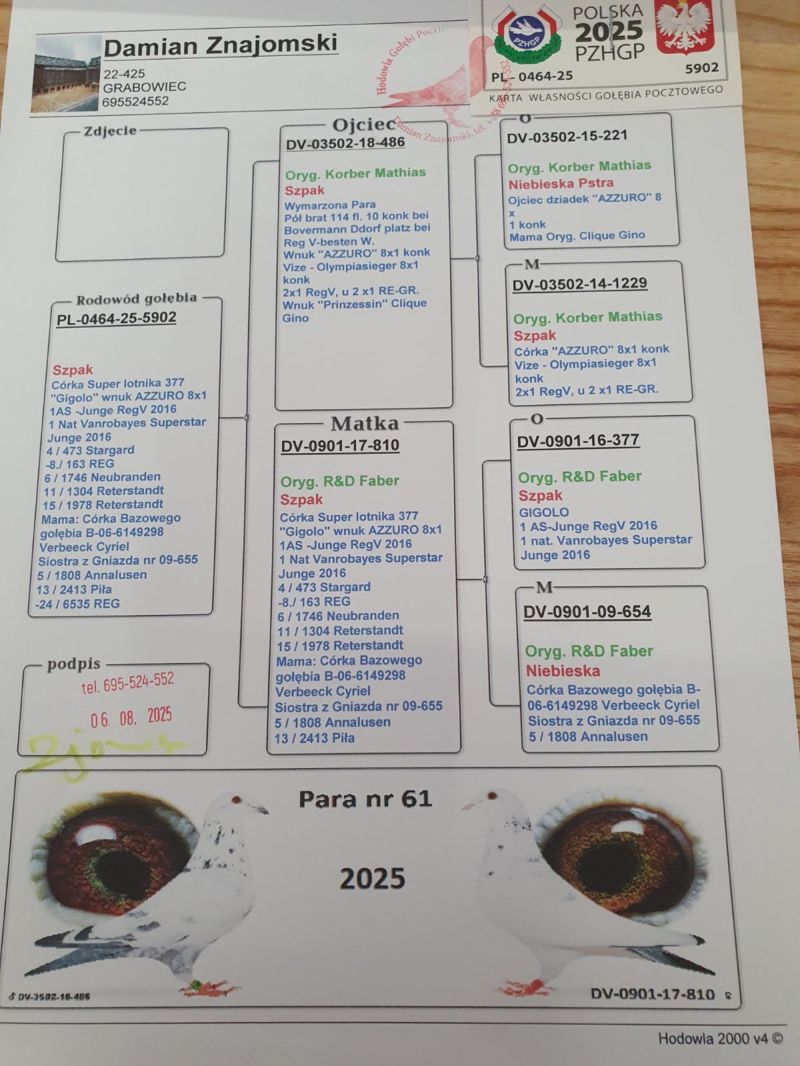 Damian Znajomski
22-425
GRABOWIEC
695524552
POLSKA
2025
PZHGP
PZHGP
PL- 0464-25
5902
KARTA WŁASNOŚCI GOŁĘBIA POCZTOWEGO
Zdjecie
Rodowód gołębia
PL-0464-25-5902
Szpak
Córka Super lotnika 377
"Gigolo" wnuk AZZURO 8x1
1AS -Junge RegV 2016
1 Nat Vanrobayes Superstar
Junge 2016
4 / 473 Stargard
-8./ 163 REG
6 / 1746 Neubranden
11 / 1304 Reterstandt
15 / 1978 Reterstandt
Mama: Córka Bazowego
gołębia B-06-6149298
Verbeeck Cyriel
Siostra z Gniazda nr 09-655
5 / 1808 Annalusen
13 / 2413 Piła
-24 / 6535 REG
podpis
tel. 695-524-552
06. 08. 2025
Ojciec
DV-03502-18-486
Oryg. Korber Mathias
Szpak
Wymarzona Para
Pół brat 114 fl. 10 konk bei
Bovermann Ddorf platz bei
Reg V-besten W.
Wnuk "AZZURO" 8x1 konk
Vize - Olympiasieger 8x1
konk
2x1 RegV, u 2 x1 RE-GR.
Wnuk "Prinzessin" Clique
Gino
Matka
DV-0901-17-810
Oryg. R&D Faber
Szpak
Córka Super lotnika 377
"Gigolo" wnuk AZZURO 8x1
1AS -Junge RegV 2016
1 Nat Vanrobayes Superstar
Junge 2016
4 / 473 Stargard
-8./ 163 REG
6 / 1746 Neubranden
11 / 1304 Reterstandt
15 / 1978 Reterstandt
Mama: Córka Bazowego
gołębia B-06-6149298
Verbeeck Cyriel
Siostra z Gniazda nr 09-655
5 / 1808 Annalusen
13 / 2413 Piła
O
DV-03502-15-221
Oryg. Korber Mathias
Niebieska Pstra
Ojciec dziadek "AZZURO" 8
x
1 konk
Mama Oryg. Clique Gino
M
DV-03502-14-1229
Oryg. Korber Mathias
Szpak
Córka "AZZURO" 8x1 konk
Vize - Olympiasieger 8x1
konk
2x1 RegV, u 2 x1 RE-GR.
O
DV-0901-16-377
Oryg. R&D Faber
Szpak
GIGOLO
1 AS-Junge RegV 2016
1 nat. Vanrobayes Superstar
Junge 2016
M
DV-0901-09-654
Oryg. R&D Faber
Niebieska
Córka Bazowego gołębia B-
06-6149298 Verbeeck Cyriel
Siostra z Gniazda nr 09-655
5 / 1808 Annalusen
Para nr 61
2025
♂ DV-3502-18-486
DV-0901-17-810 ♀
Hodowla 2000 v4 ©